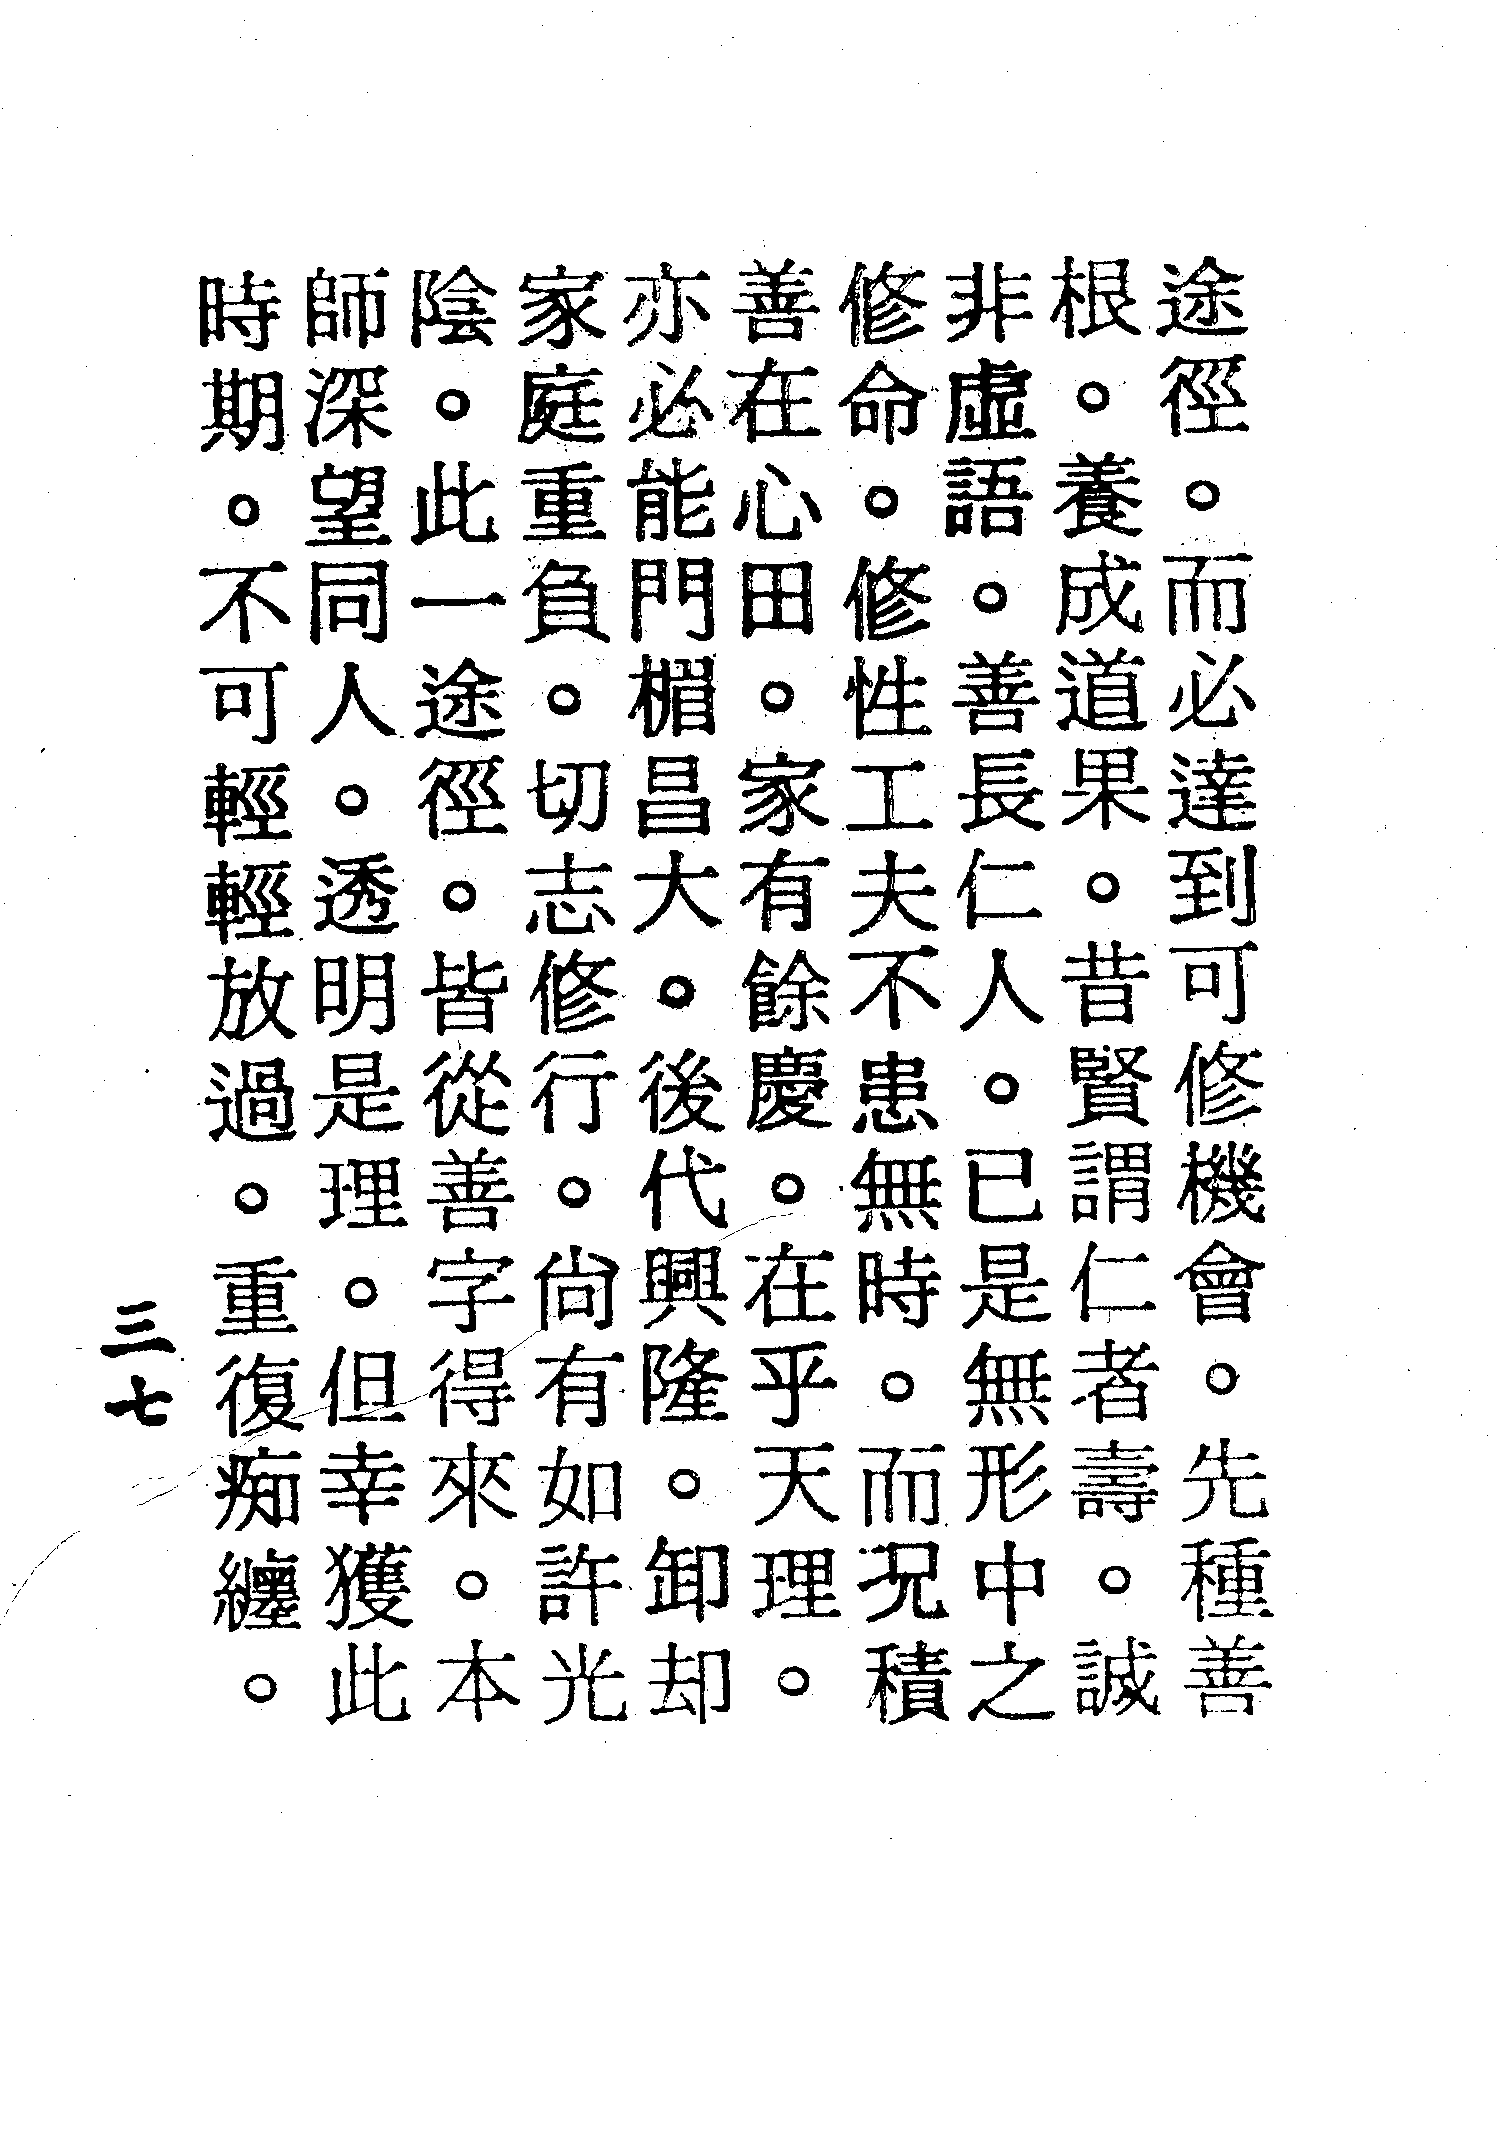 途徑。而必達到可修機會。先種善
根。養成道果。昔賢謂仁者壽。誠
非虛語。善長仁人。已是無形中之
修命。修性工夫不患無時。而況積
善在心田。家有餘慶。在乎天理。
亦必能門楣昌大。後代興隆。卸却
家庭重負。切志修行。尙有如許光
陰。此一途徑。皆從善字得來。本
師深望同人。透明是理。但幸獲此
時期。不可輕輕放過。重復痴纏。
三七